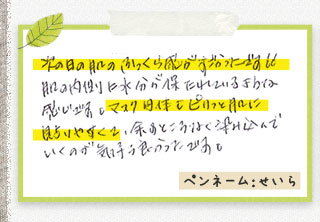 次の日の肌のふっくら感がすごかったです!!
肌の内側に水分が保たれているような
感じです。マスク自体もピタッと肌に
貼りやすくて、余すところなく染み込んで
いくのが気持ち良かったです。
ペンネーム:せいら